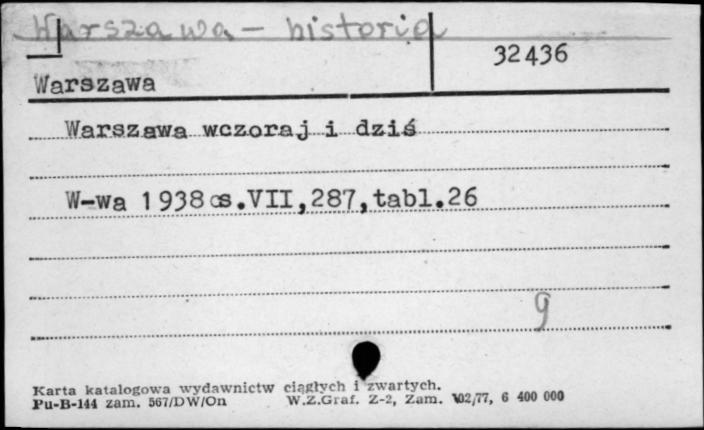 Warszawa - historia
32436
Warszawa
Warszawa wczoraj i dziś
W-wa 1938 s.VII,287,tabl.26
g
Karta katalogowa wydawnictw ciągłych i zwartych.
Pu-B-144 zam. 567/DW/On W.Z.Graf. Z-2, Zam. 102/77, 6 400 000